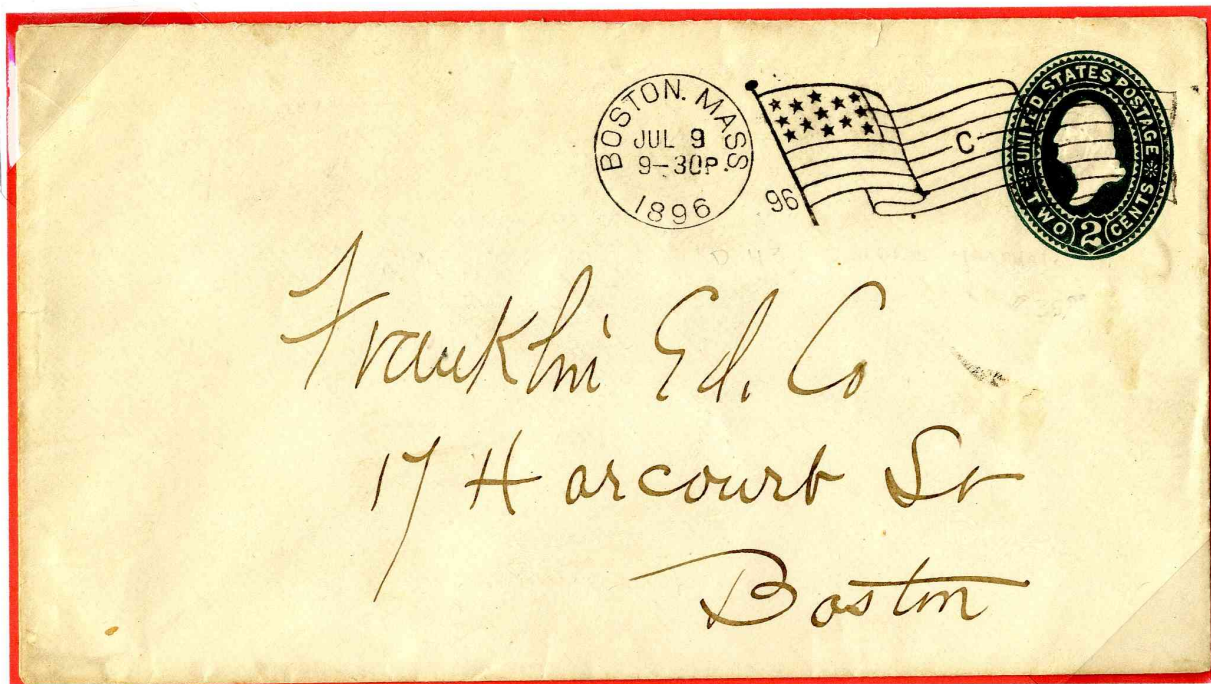 BOSTON. MASS.
JUL 9
9-30P.
1896
96
C
UNITED STATES POSTAGE
TWO 2 CENTS
Franklin Ed. Co
17 Harcourt St
Boston